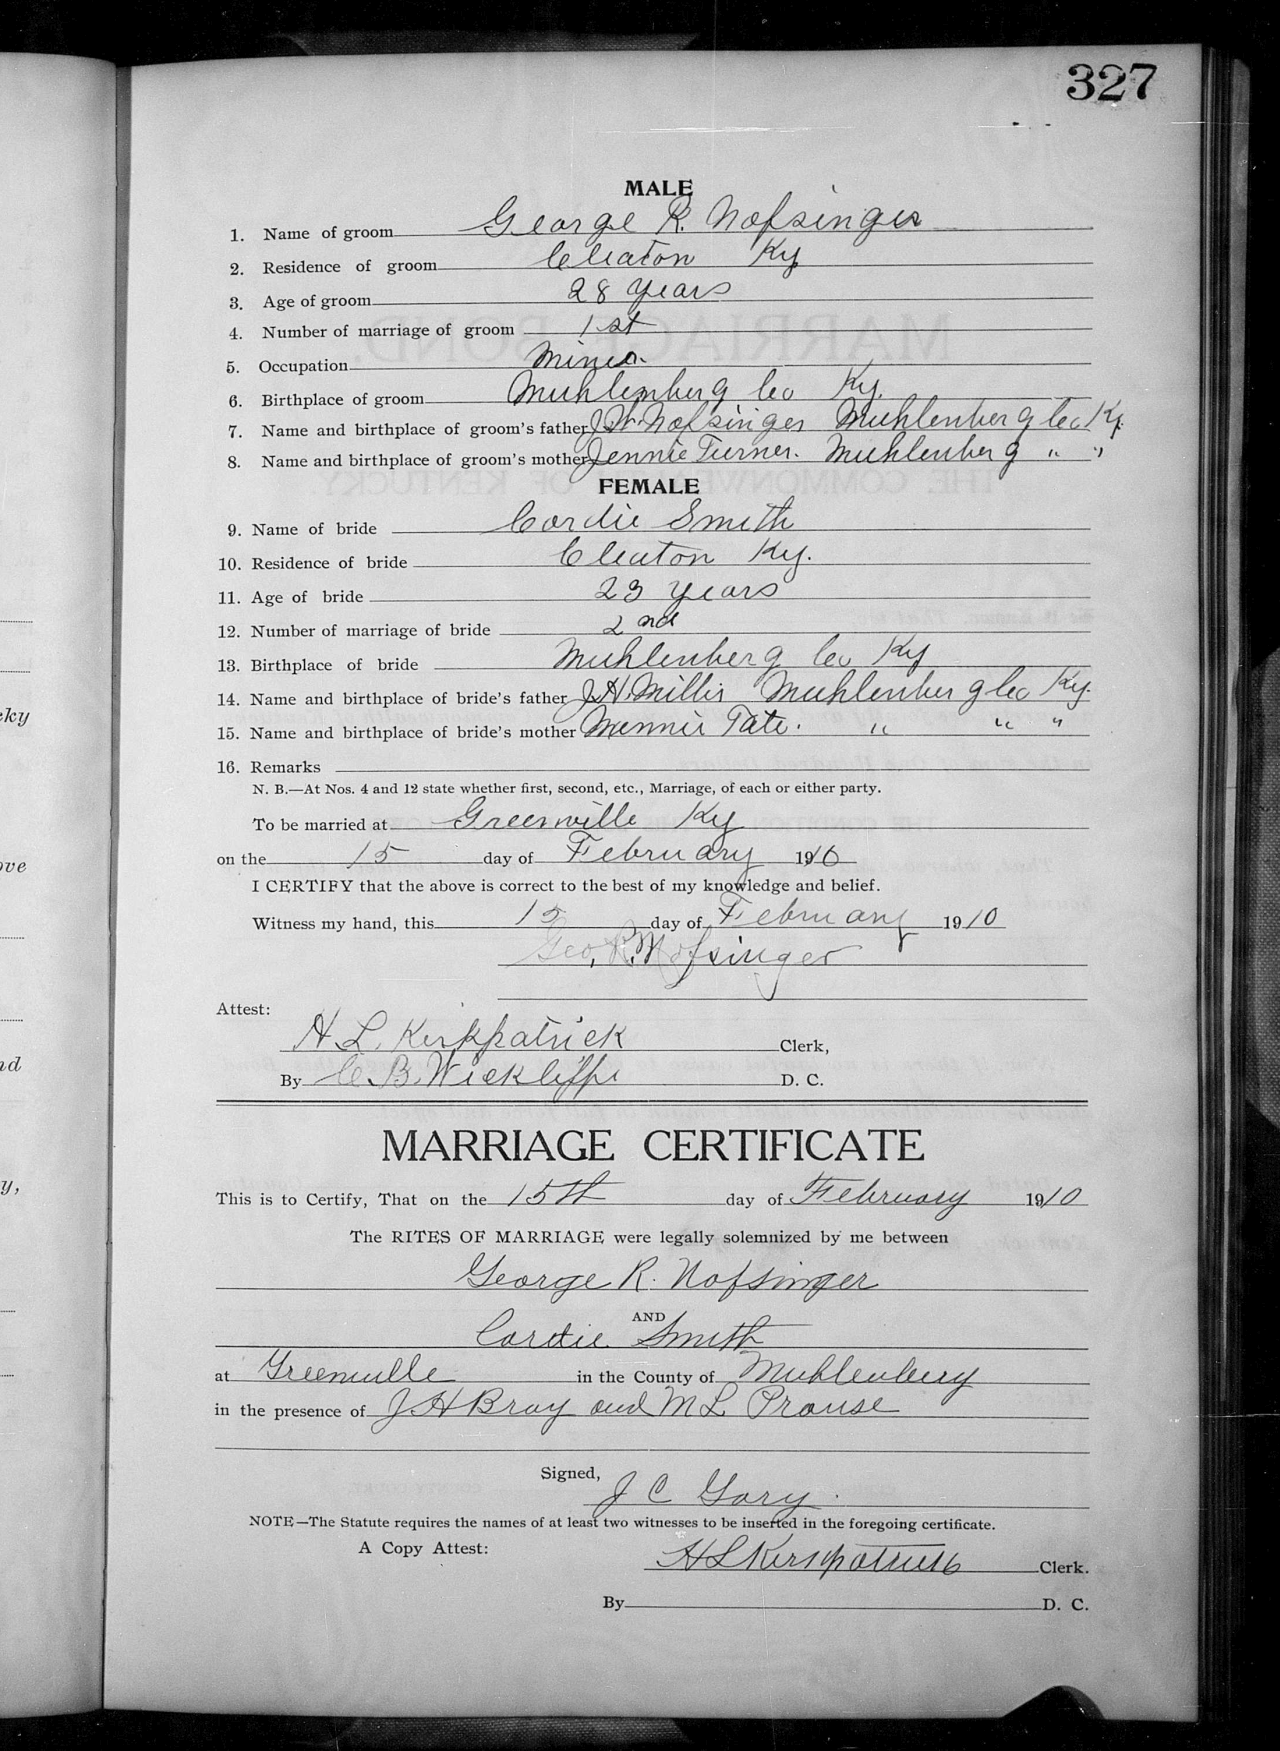 327
MALE
1. Name of groom George R. Nofsinger
2. Residence of groom Cleaton Ky
3. Age of groom 28 years
4. Number of marriage of groom 1st
5. Occupation Miner.
6. Birthplace of groom Muhlenberg Co Ky.
7. Name and birthplace of groom's father J.W. Nofsinger Muhlenberg Co Ky.
8. Name and birthplace of groom's mother Jennie Turner. Muhlenberg " "
FEMALE
9. Name of bride Cordie Smith
10. Residence of bride Cleaton Ky.
11. Age of bride 23 years
12. Number of marriage of bride 2nd
13. Birthplace of bride Muhlenberg Co Ky
14. Name and birthplace of bride's father J.H. Miller Muhlenberg Co Ky.
15. Name and birthplace of bride's mother Mennie Tate. " " "
16. Remarks
N. B.—At Nos. 4 and 12 state whether first, second, etc., Marriage, of each or either party.
To be married at Greenville Ky
on the 15 day of February 1910
I CERTIFY that the above is correct to the best of my knowledge and belief.
Witness my hand, this 15 day of February 1910
Geo. R. Nofsinger
Attest:
H L. Kirkpatrick Clerk,
By C. B. Wickliffe D. C.
MARRIAGE CERTIFICATE
This is to Certify, That on the 15th day of February 1910
The RITES OF MARRIAGE were legally solemnized by me between
George R. Nofsinger
AND
Cordie Smith
at Greenville in the County of Muhlenberg
in the presence of J H Bray and M L Prouse
Signed,
J C Gary.
NOTE—The Statute requires the names of at least two witnesses to be inserted in the foregoing certificate.
A Copy Attest:
H L Kirkpatrick Clerk.
By D. C.